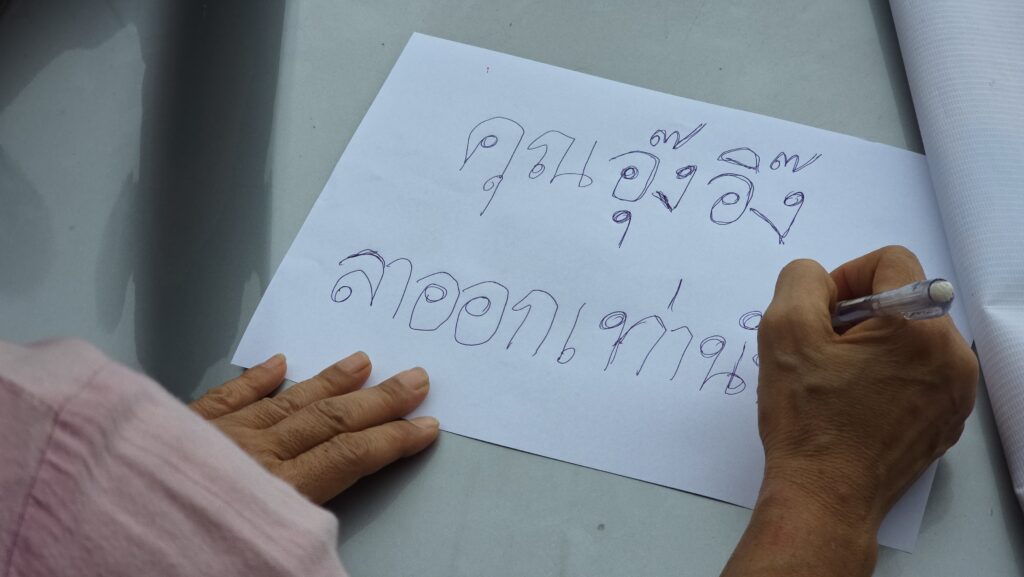 คุณอุ๊งอิ๊ง
ลาออกเท่า